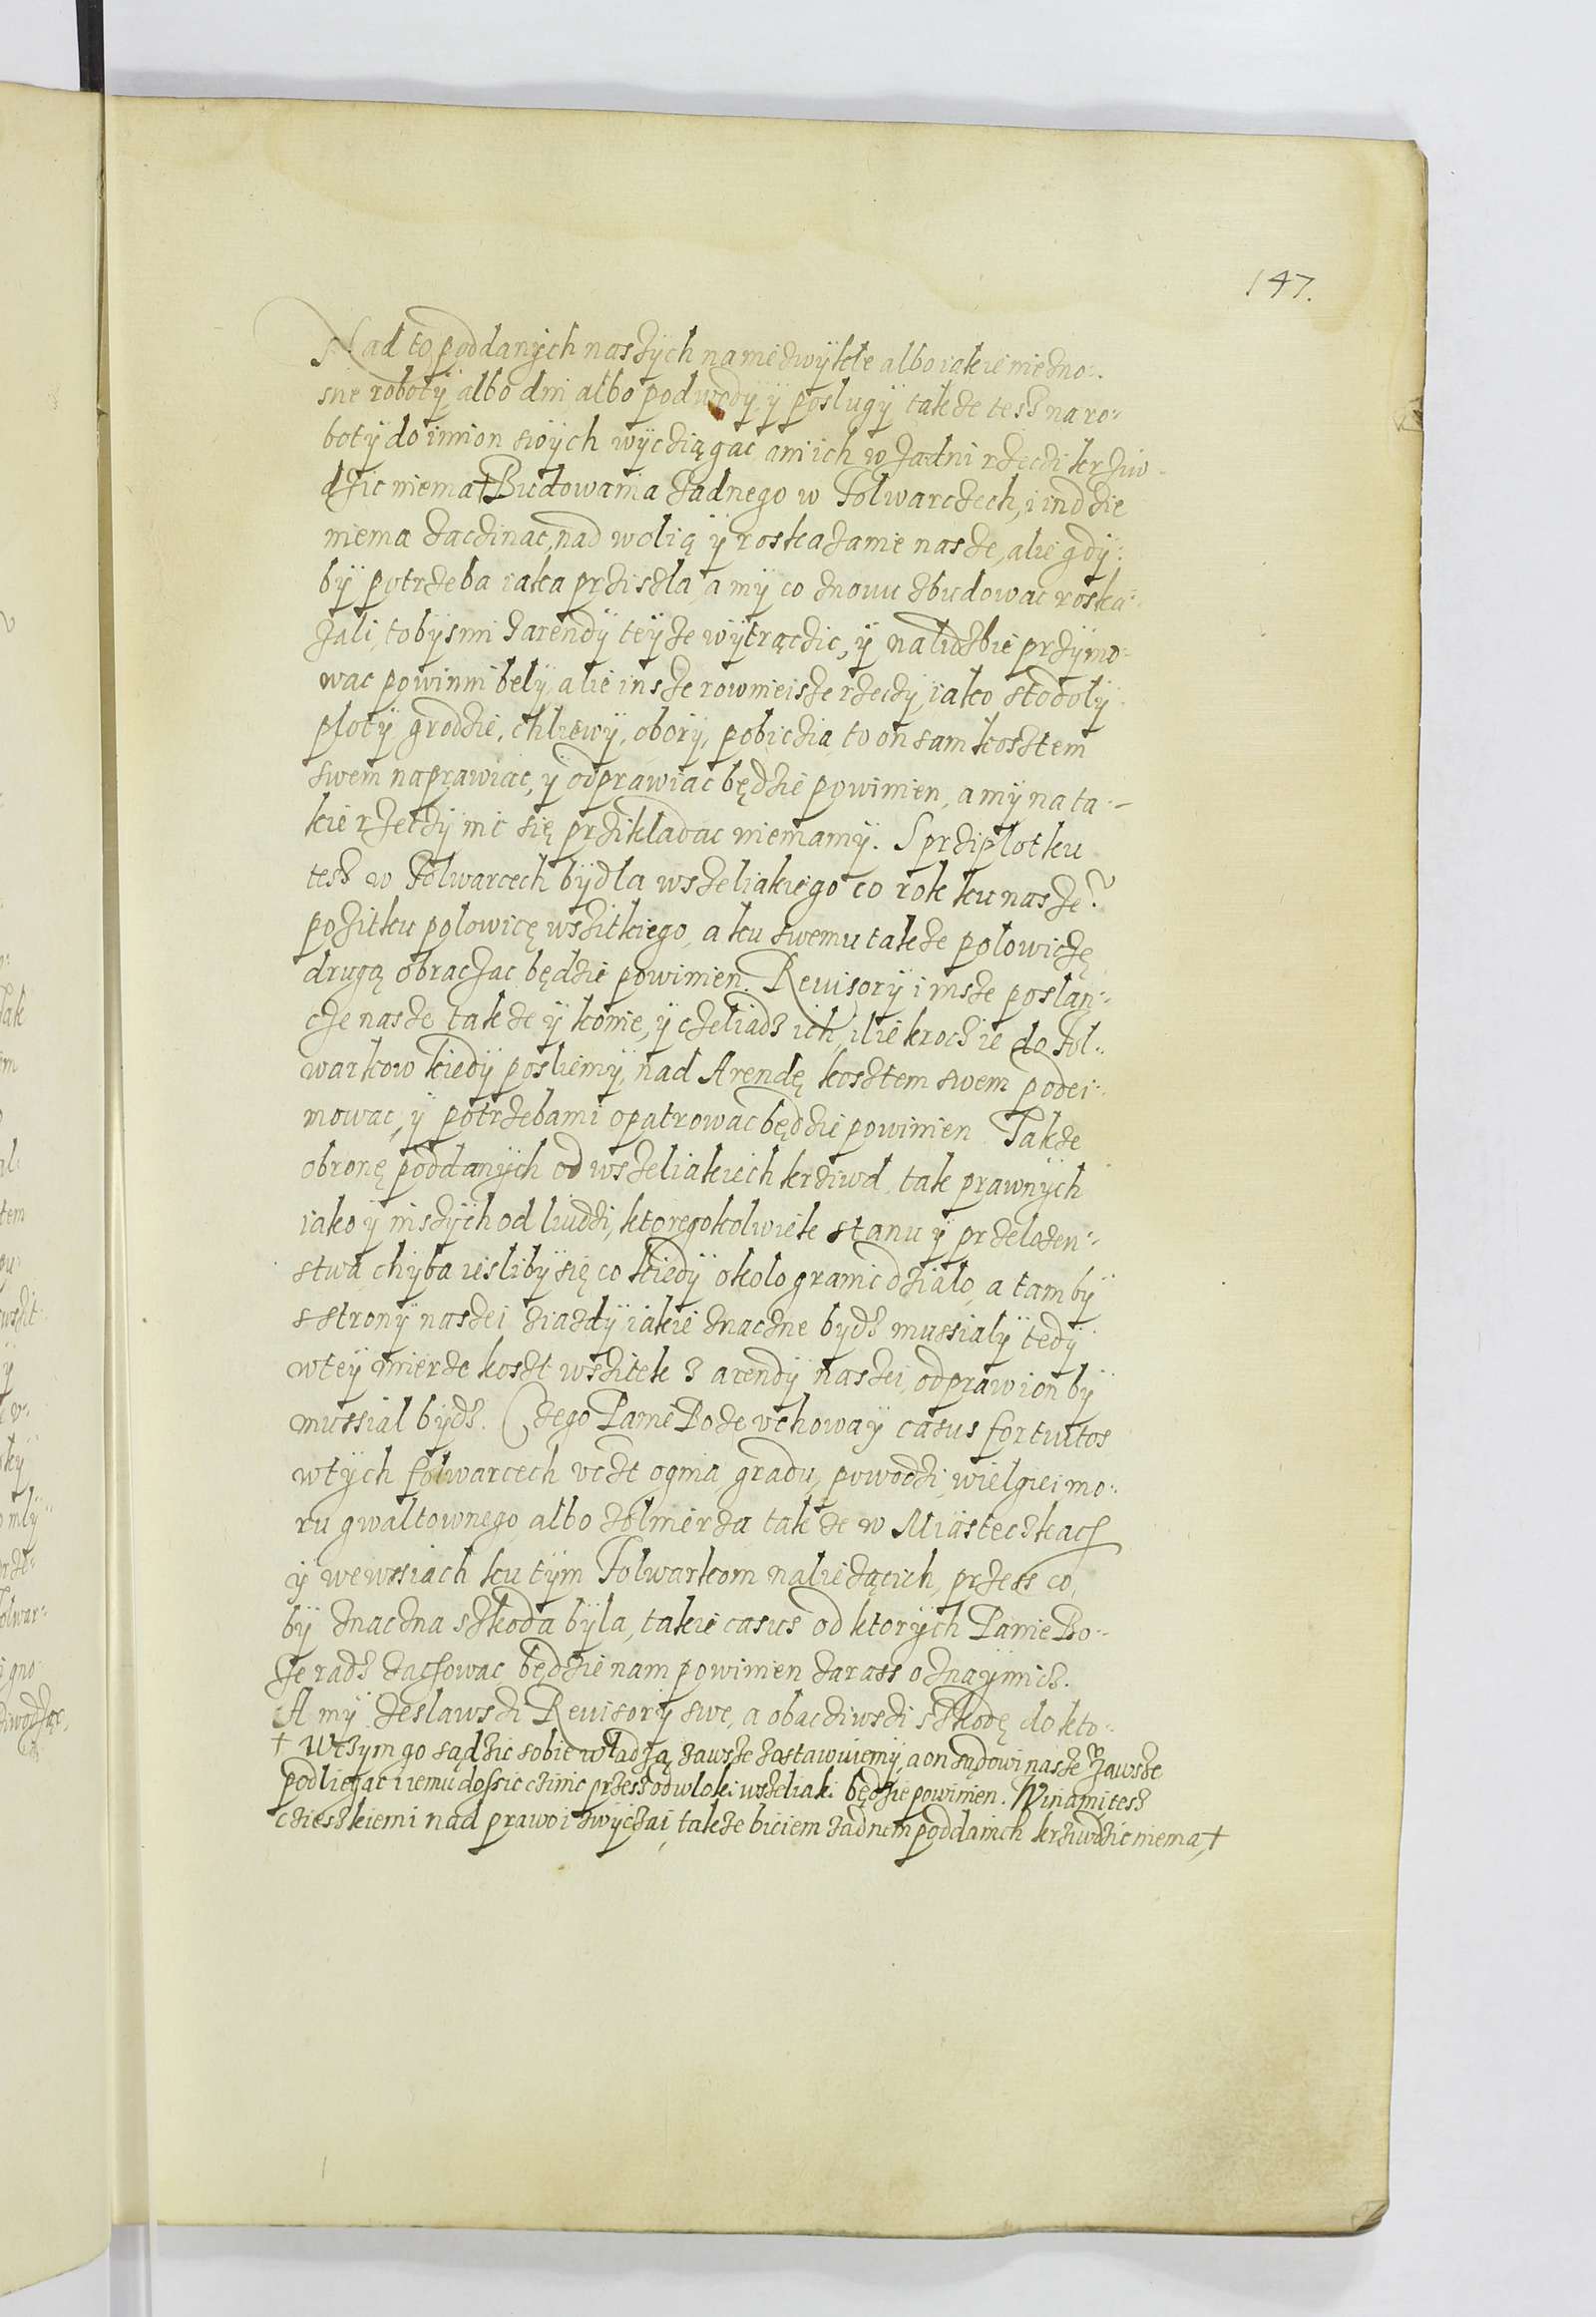 147.
Nad to poddanÿch naszÿch na niezwÿkłe albo iakie niezno-
sne robotÿ, albo dni albo podwodÿ, ÿ poslugÿ takze tesz na ro-
botÿ do imion swoÿch wÿcziągac ani ich w zadni rzeczi krziw-
dzic niema † Budowania zadnego w Folwarczech, i indzie
niema zaczinac, nad wolią ÿ roskazanie nasze, alie gdÿ-
bÿ potrzeba iaka prziszla, a mÿ co znowu zbudowac roska-
zali, to bÿsmi z arendÿ teÿze wÿtrączic, ÿ na liczbie przÿmo-
wac powinni belÿ, alie insze rownieisze rzeczÿ, iako stodolÿ
plotÿ grodzie, chliewÿ, oborÿ, pobiczia, to on sam kosztem
swem naprawiac, ÿ odprawiac będzie powinien, a mÿ na ta-
kie rzeczÿ nic się przikladac niemamÿ. S prziplotku
tesz w Folwarcech bÿdla wszeliakiego co rok ku nasze
pozitku polowicę wszitkiego, a ku swemu takze polowiczę
drugą obraczac będzie powinien. Revisorÿ i insze poslan-
cze nasze takze ÿ konie, ÿ czeliadz ich, iliekrocz ie do Fol-
warkow kiedÿ posliemÿ, nad Arendę kosztem swem podei-
mowac, ÿ potrzebami opatrowac będzie powinien Takze
obronę poddanÿch od wszeliakiech krziwd, tak prawnÿch
iako ÿ inszÿch od liudzi, ktoregokolwiek stanu ÿ przelozen-
stwa chÿba iesli bÿ się co kiedÿ okolo granic dzialo, a tam bÿ
s stronÿ naszei ziazdÿ iakie znaczne bÿdz mussialÿ tedÿ
w teÿ mierze koszt wszitek z arendÿ naszei, odprawion bÿ
mussial bÿdz. Czego Panie Boze vchowaÿ casus fortuitos
w tÿch folwarcech vczt ognia gradu, powodzi, wielgiei mo-
ru gwaltownego albo zolnierza takze w Miasteczkach
ÿ we wsiach ku tÿm Folwarkom naliezącich, przess co
bÿ znaczna szkoda bÿla, takie casus od ktorÿch Panie Bo-
ze radz zachowac będzie nam powinien zarass oznaÿmicz.
A mÿ zeslawszi Revisorÿ swe, a obacziwszi szkodę do kto-
† W czym go sądzic sobie władzą zawsze zostawuiemÿ, a on sądowi nasze zawsze
podliegac i iemu dossic czinic przesz odwloki wszeliaki będzie powinien. Winami tesz
czieszkiemi nad prawo i zwÿczai, takze biciem zadnem poddanich krziwdzic niema, †